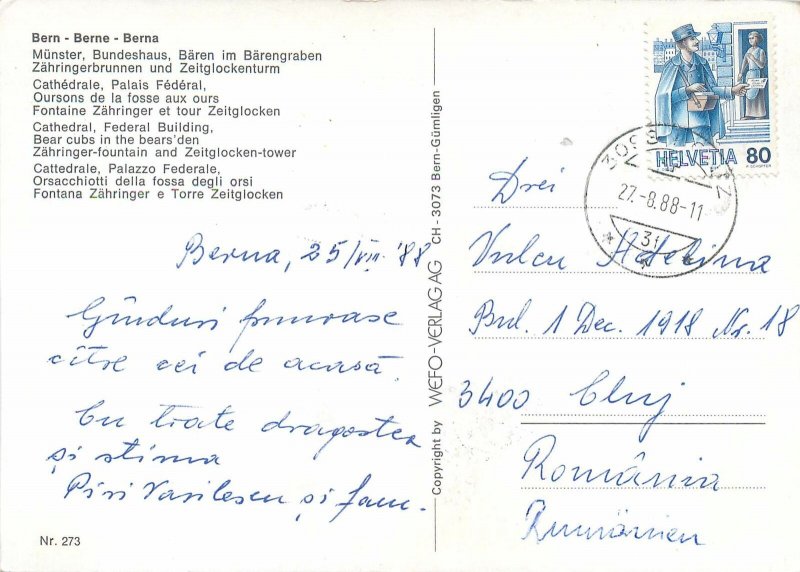 Bern - Berne - Berna
Münster, Bundeshaus, Bären im Bärengraben
Zähringerbrunnen und Zeitglockenturm
Cathédrale, Palais Fédéral,
Oursons de la fosse aux ours
Fontaine Zähringer et tour Zeitglocken
Cathedral, Federal Building,
Bear cubs in the bears'den
Zähringer-fountain and Zeitglocken-tower
Cattedrale, Palazzo Federale,
Orsacchiotti della fossa degli orsi
Fontana Zähringer e Torre Zeitglocken
Berna, 25/VIII '88
Gînduri frumoase
către cei de acasă.
Cu toate dragostea
și stima
Piri Vasilescu și fam.
Nr. 273
Copyright by WEFO-VERLAG AG CH - 3073 Bern-Gümligen
HELVETIA 80
27.-8.88-11
31
Vulcu
Bul. 1 Dec. 1918 Nr. 18
3400 Cluj
România
Rumänien